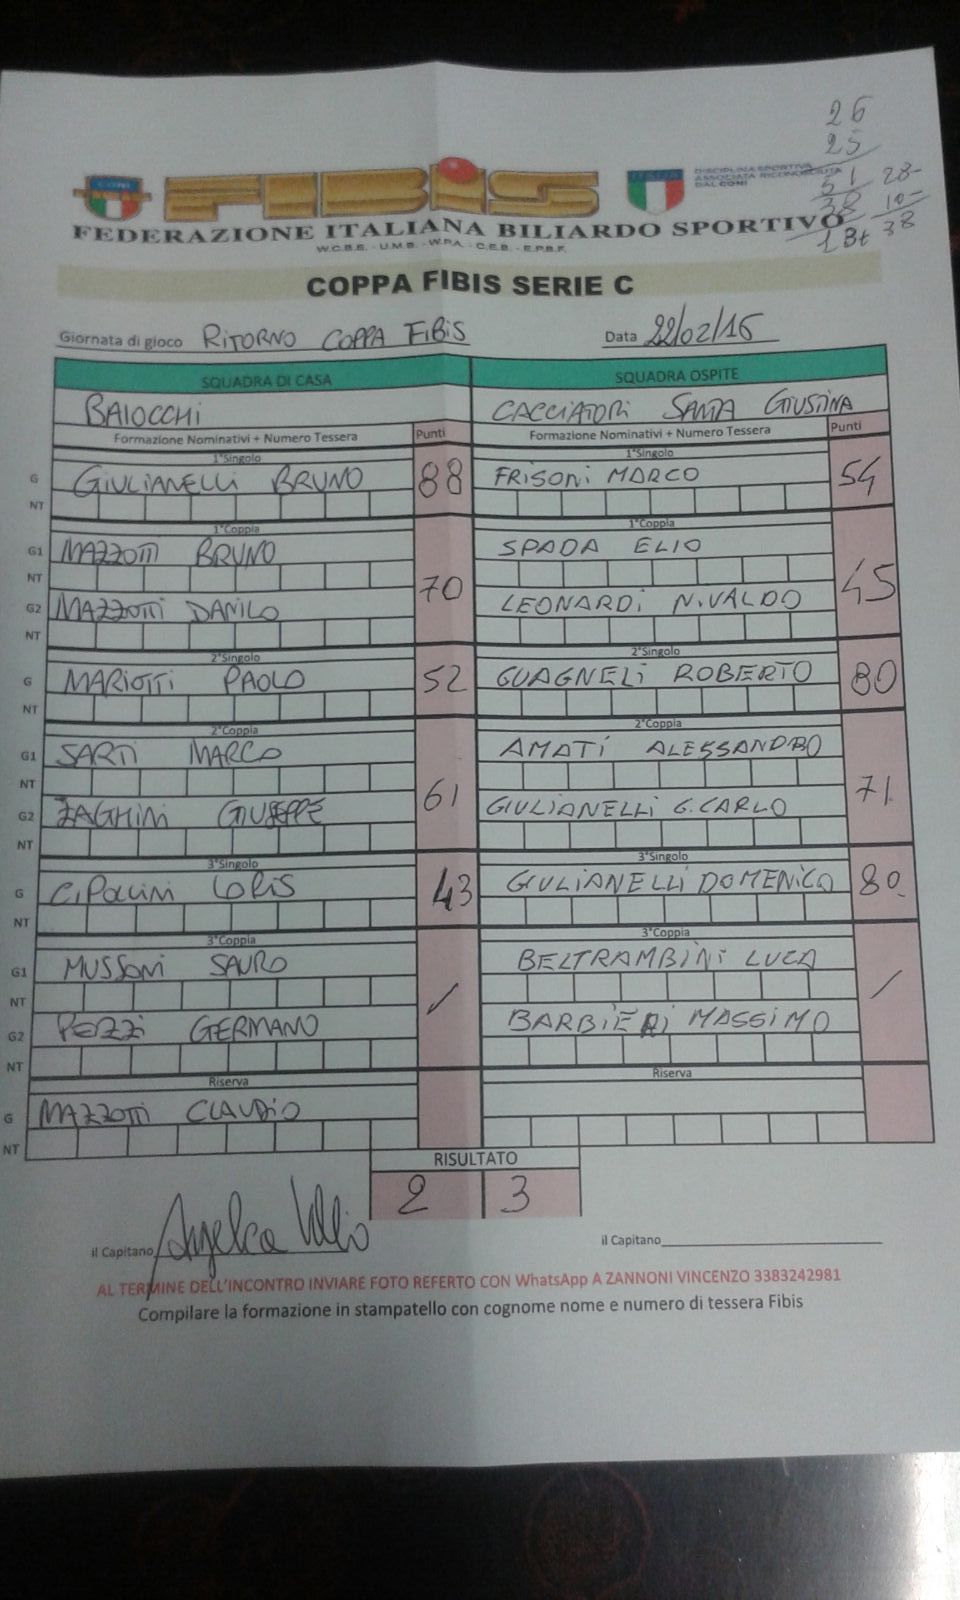 26
25
51 28-
38 10-
13+ 38
CONI
FIBIS
ITALIA
DISCIPLINA SPORTIVA
ASSOCIATA RICONOSCIUTA
DAL CONI
FEDERAZIONE ITALIANA BILIARDO SPORTIVO
W.C.B.S. - U.M.B. - W.P.A. - C.E.B. - E.P.B.F.
COPPA FIBIS SERIE C
Giornata di gioco RITORNO COPPA FIBIS Data 22/02/16
SQUADRA DI CASA SQUADRA OSPITE
BAIOCCHI CACCIATORI SANTA GIUSTINA
Formazione Nominativi + Numero Tessera Punti Formazione Nominativi + Numero Tessera Punti
1°Singolo 1°Singolo
G GIULIANELLI BRUNO 88 FRISONI MARCO 54
NT
1°Coppia 1°Coppia
G1 MAZZOTTI BRUNO SPADA ELIO
NT 70 45
G2 MAZZOTTI DANILO LEONARDI NIVALDO
NT
2°Singolo 2°Singolo
G MARIOTTI PAOLO 52 GUAGNELI ROBERTO 80
NT
2°Coppia 2°Coppia
G1 SARTI MARCO AMATI ALESSANDRO
NT 61 71
G2 ZAGHINI GIUSEPPE GIULIANELLI G.CARLO
NT
3°Singolo 3°Singolo
G CIPOLLINI LORIS 43 GIULIANELLI DOMENICO 80
NT
3°Coppia 3°Coppia
G1 MUSSONI SAURO BELTRAMBINI LUCA
NT / /
G2 PEZZI GERMANO BARBIERI MASSIMO
NT
Riserva Riserva
G MAZZOTTI CLAUDIO
NT
RISULTATO
2 3
il Capitano il Capitano
AL TERMINE DELL'INCONTRO INVIARE FOTO REFERTO CON WhatsApp A ZANNONI VINCENZO 3383242981
Compilare la formazione in stampatello con cognome nome e numero di tessera Fibis